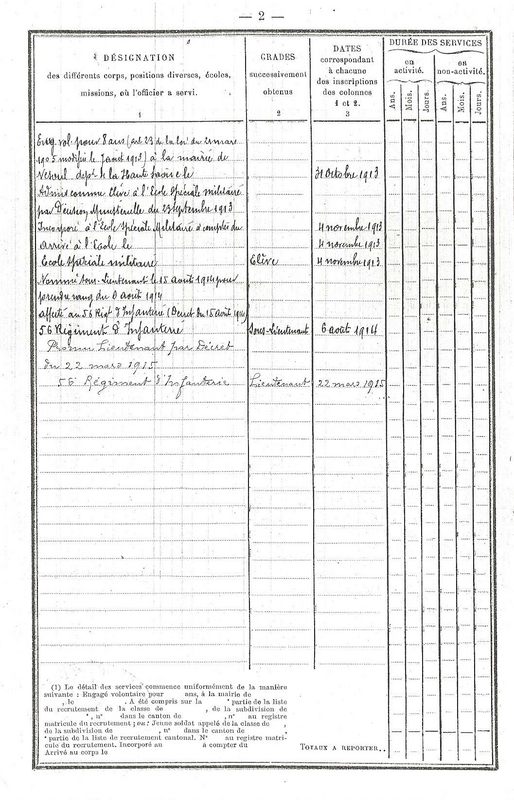 — 2 —
DÉSIGNATION
des différents corps, positions diverses, écoles,
missions, où l'officier a servi.
1
GRADES
successivement
obtenus
2
DATES
correspondant
à chacune
des inscriptions
des colonnes
1 et 2.
3
DURÉE DES SERVICES
en
activité.
en
non-activité.
Ans.
Mois.
Jours.
Ans.
Mois.
Jours.
Eng. vol. pour 8 ans (art 23 de la loi du 21 mars
1905 modifiée le 7 août 1913) à la mairie de
Vesoul dept de la Haute Saône le 31 Octobre 1913
Admis comme élève à l'Ecole Spéciale militaire
par Décision Ministérielle du 23 septembre 1913
Incorporé à l'Ecole Spéciale Militaire à compter du 4 novembre 1913
Arrivé à l'Ecole le 4 novembre 1913
Ecole Spéciale militaire Elève 4 novembre 1913
Nommé sous-Lieutenant le 15 août 1914 pour
prendre rang du 6 août 1914
affecté au 56 Régt d'Infanterie (Décret du 15 août 1914)
56 Régiment d'Infanterie Sous-Lieutenant 6 août 1914
Promu Lieutenant par Décret
du 22 mars 1915
56 Régiment d'Infanterie Lieutenant 22 mars 1915
(1) Le détail des services commence uniformément de la manière
suivante : Engagé volontaire pour ans, à la mairie de
, le . A été compris sur la ° partie de la liste
du recrutement de la classe de , de la subdivision de
, n° dans le canton de , n° au registre
matricule du recrutement ; ou : Jeune soldat appelé de la classe de ,
de la subdivision de , n° dans le canton de ,
° partie de la liste de recrutement cantonal. N° au registre matri-
cule du recrutement. Incorporé au à compter du
Arrivé au corps le
TOTAUX A REPORTER..